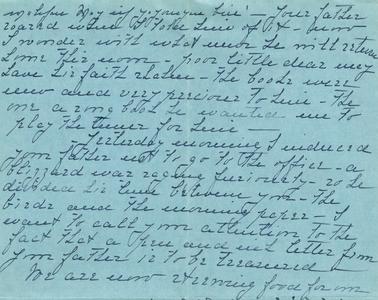 mother Way if you you live" your father
roared when I told him of it - now
I wonder with what more he will return
home this noon - poor little dear may
have his faith shaken - The books were
new and very precious to him - The
one a song book he wanted me to
play the tunes for him -
Yesterday morning I induced
your father not to go to the office - a
blizzard was raging furiously - so he
divided his time between you - the
birds and the morning paper - I
want to call your attention to the
fact that a pen and ink letter from
your father is to be treasured -
We are now storing food for our